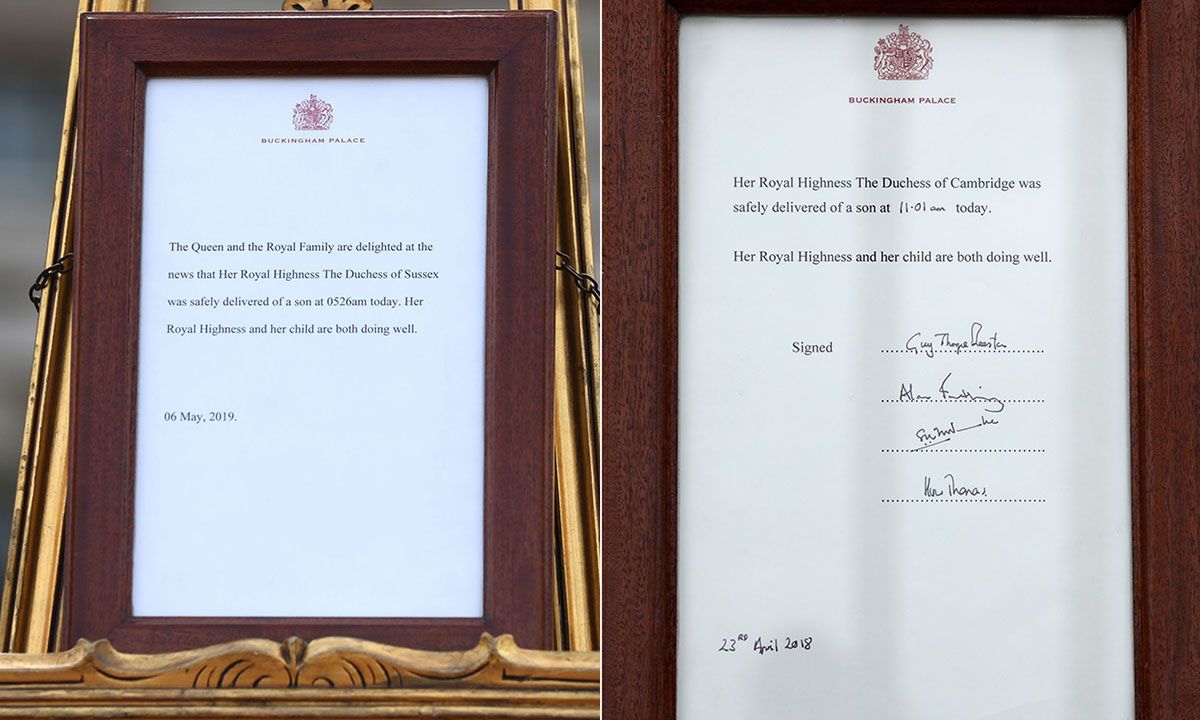 BUCKINGHAM PALACE
The Queen and the Royal Family are delighted at the
news that Her Royal Highness The Duchess of Sussex
was safely delivered of a son at 0526am today. Her
Royal Highness and her child are both doing well.
06 May, 2019.
BUCKINGHAM PALACE
Her Royal Highness The Duchess of Cambridge was
safely delivered of a son at 11.01 am today.
Her Royal Highness and her child are both doing well.
Signed
Guy Thorpe-Beeston
Alan
Thomas
23RD April 2018